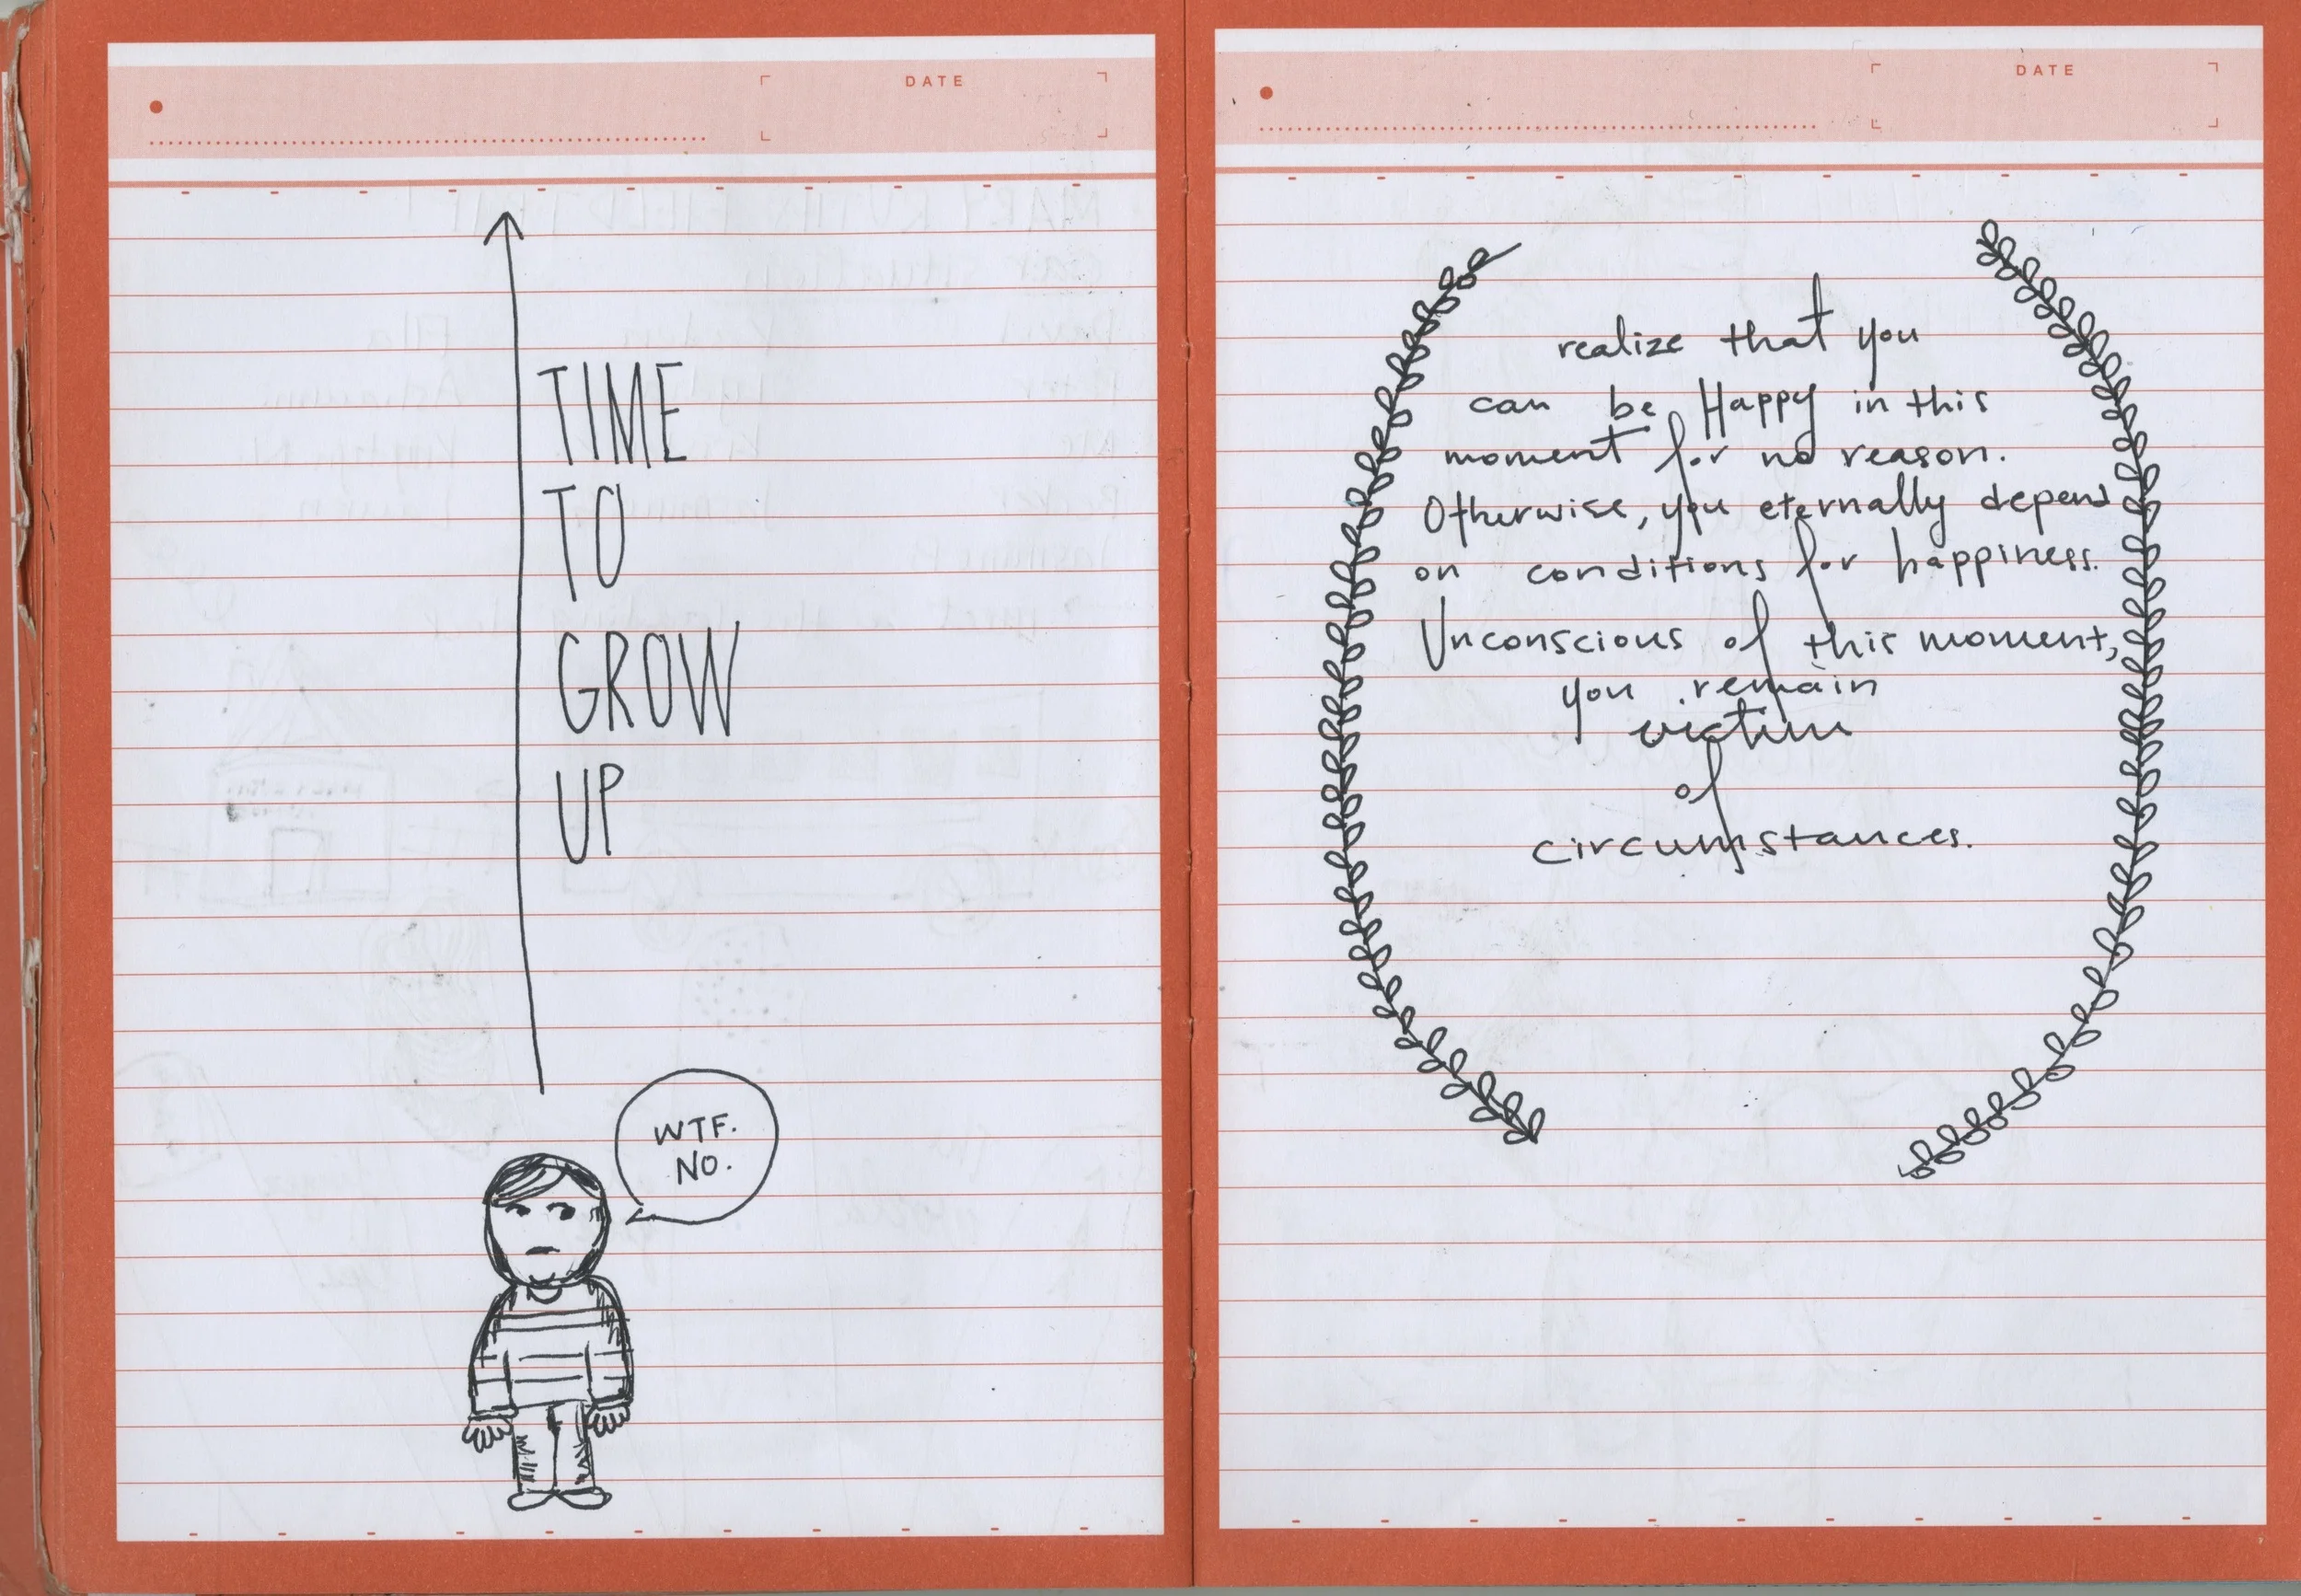 DATE
TIME
TO
GROW
UP
WTF.
NO.
DATE
realize that you
can be Happy in this
moment for no reason.
Otherwise, you eternally depend
on conditions for happiness.
Unconscious of this moment,
you remain
victim
of
circumstances.